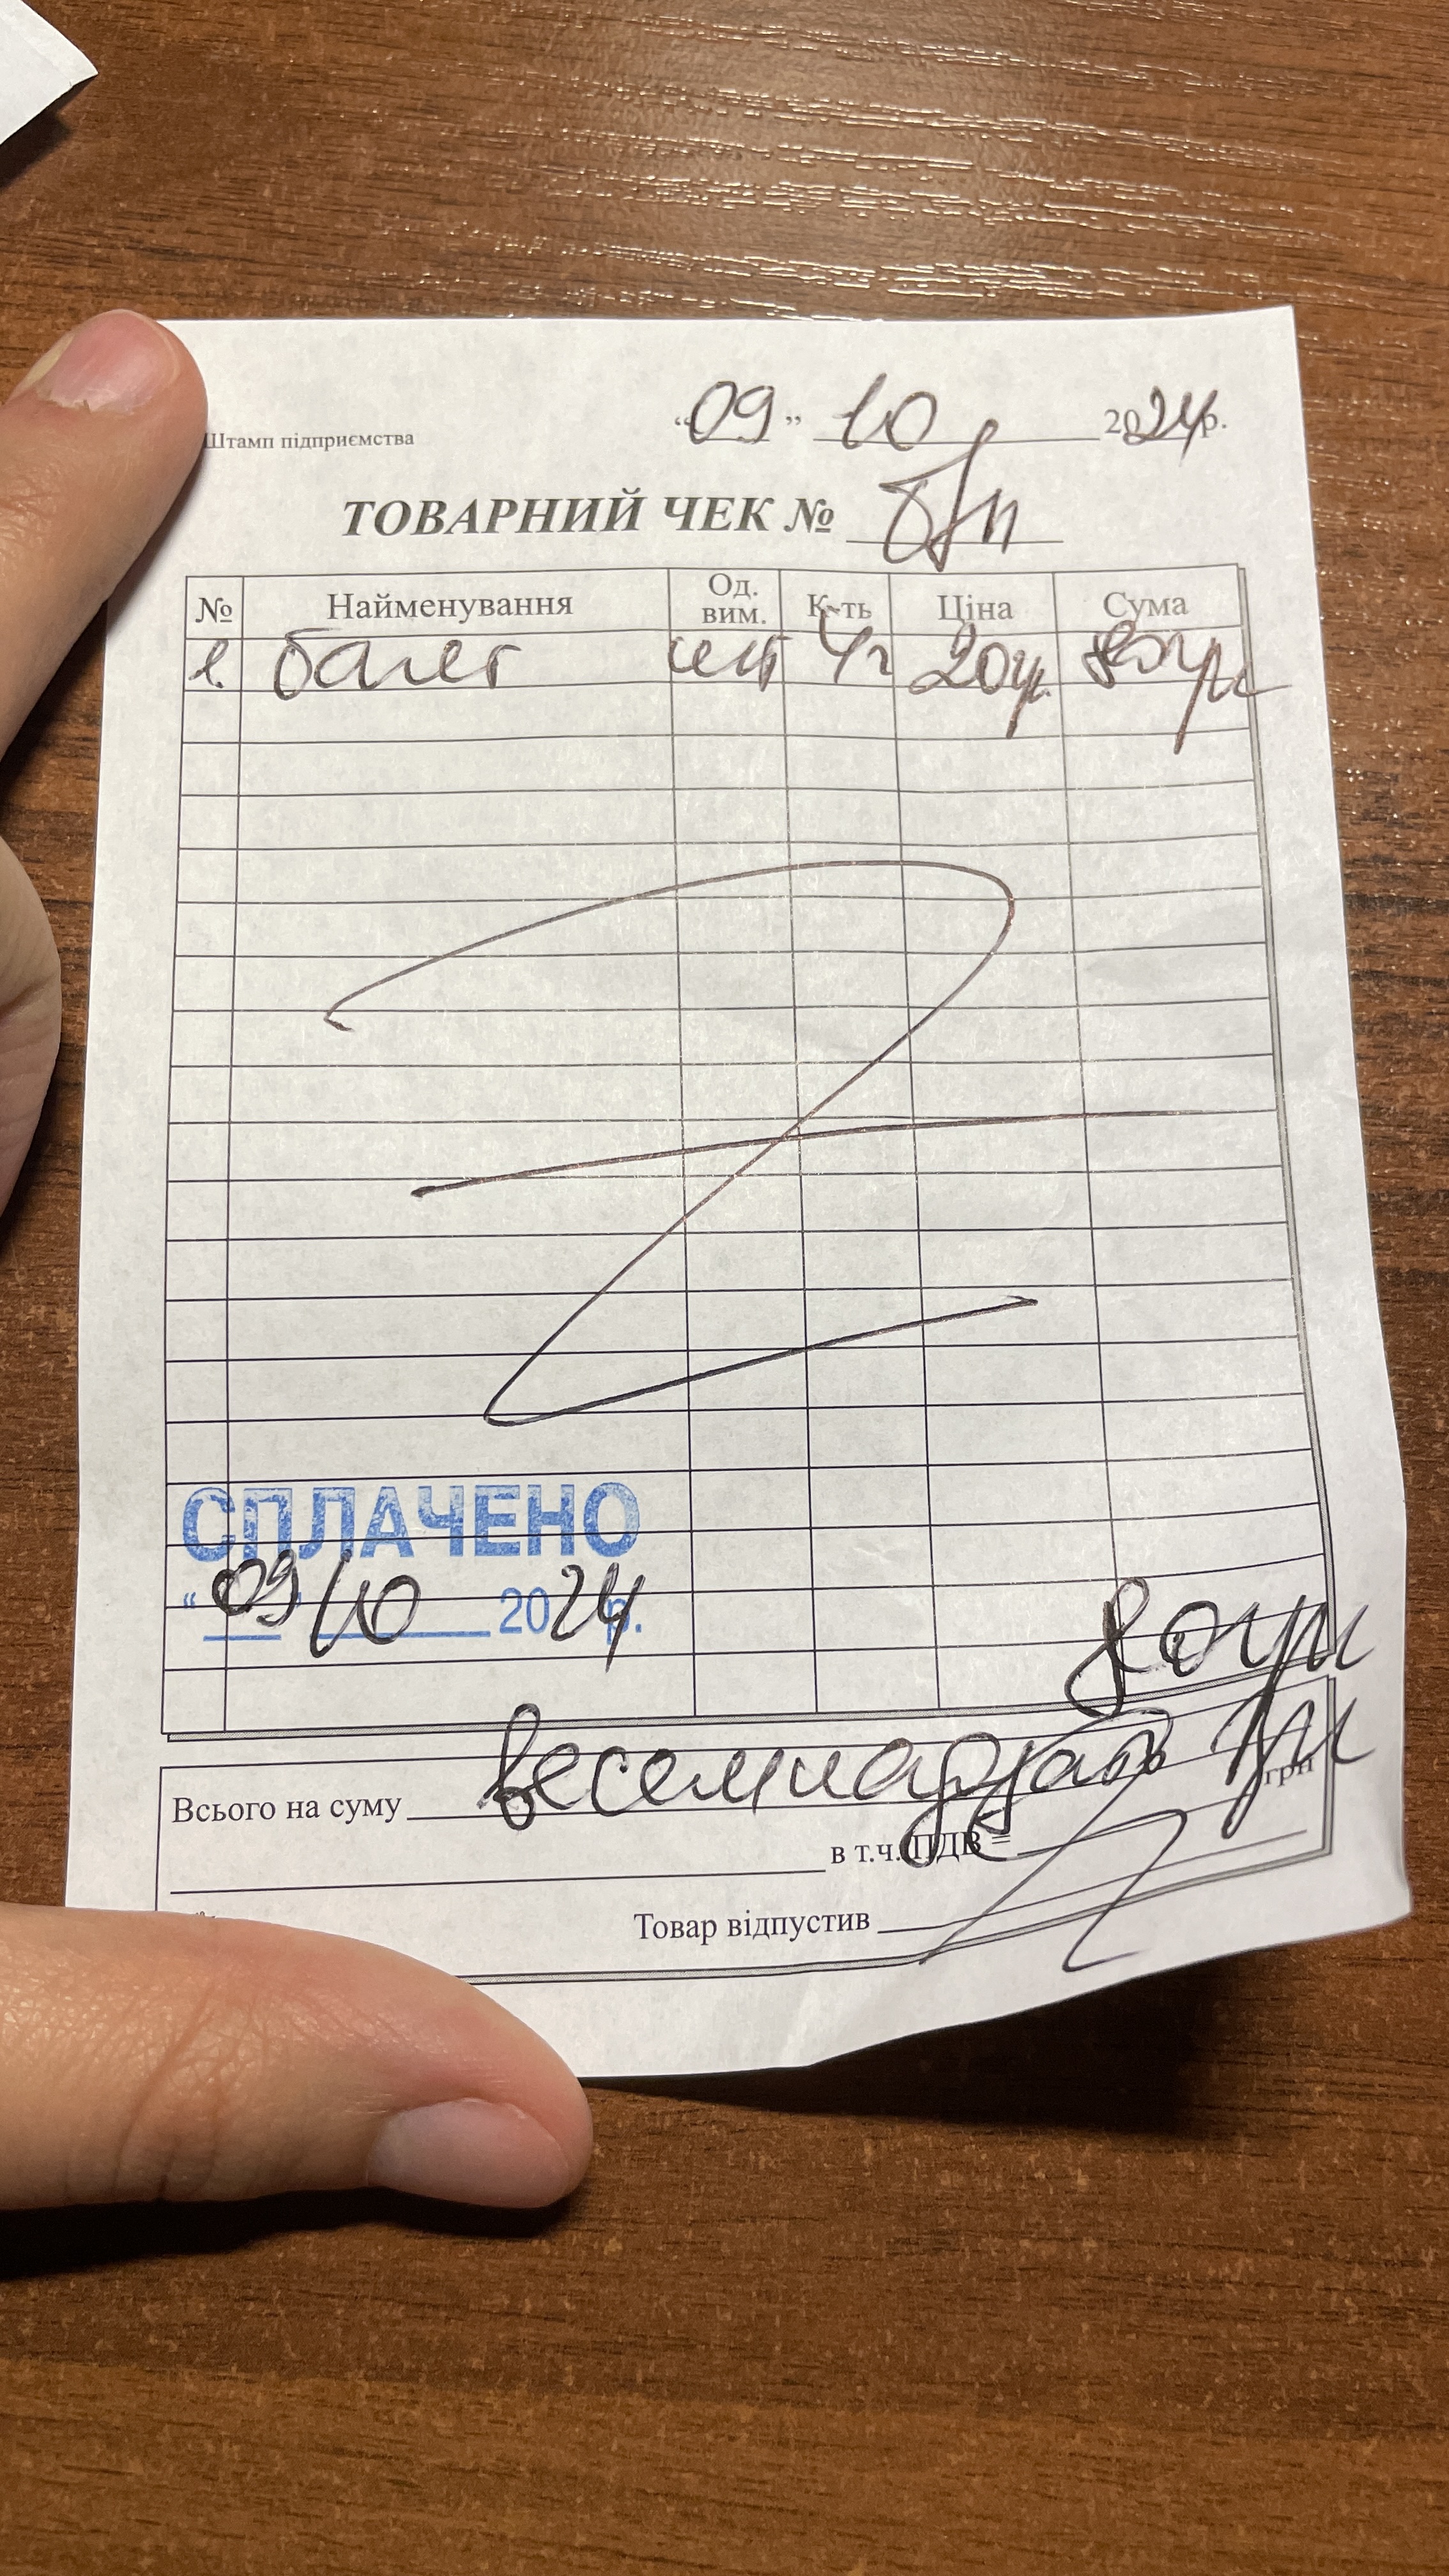 Штамп підприємства "09" 10 2024р.
ТОВАРНИЙ ЧЕК № б/н
№ Найменування Од. вим. К-ть Ціна Сума
1. багет шт 4 20гр. 80грн
СПЛАЧЕНО
"09" 10 2024р.
80грн
Всього на суму весемнадцать грн грн
в т.ч. ПДВ =
Товар відпустив